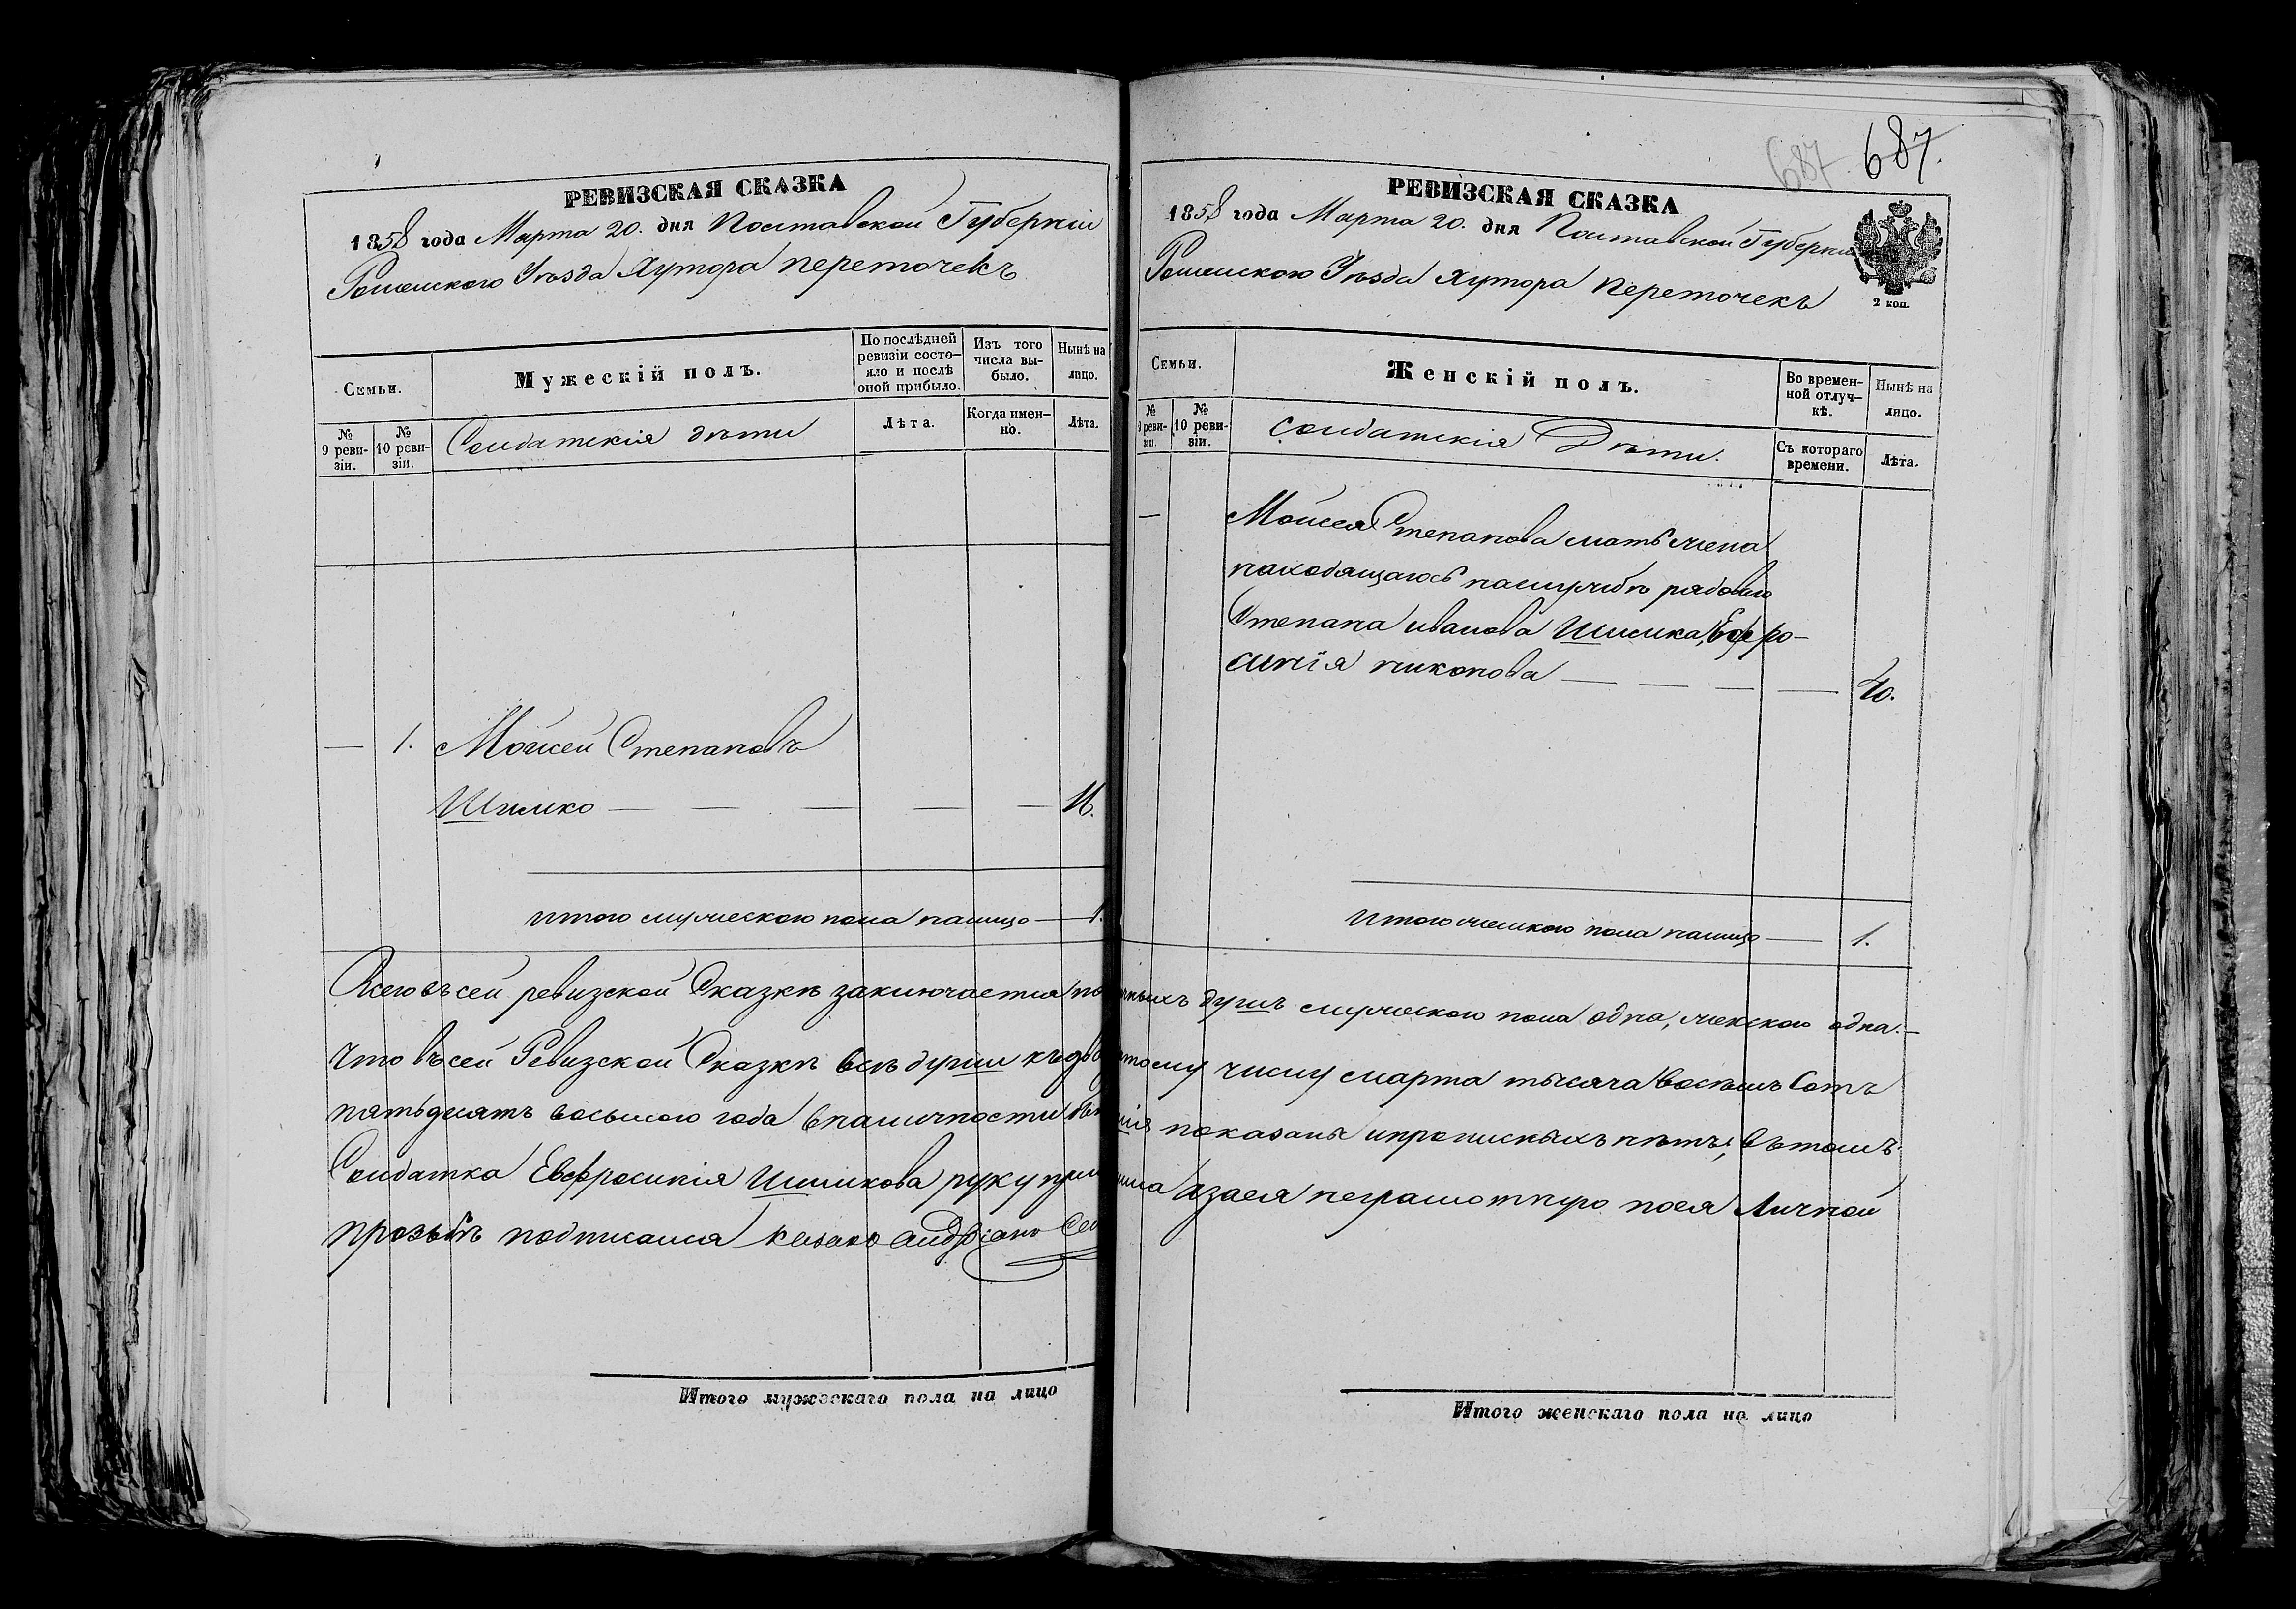 РЕВИЗСКАЯ СКАЗКА
1858 года Марта 20. дня Полтавской Губерніи
Роменского Уѣзда Хутора Переточекъ
Семьи.
№ 9 ревизіи.
№ 10 ревизіи.
Мужескій полъ.
Солдатскія дѣти
По послѣдней ревизіи состояло и послѣ оной прибыло.
Лѣта.
Изъ того числа выбыло.
Когда именно.
Нынѣ на лицо.
Лѣта.
— 1. Мойсей Степановъ
Шимко — — — — —
итого мужеского пола налицо — 1.
687 687.
РЕВИЗСКАЯ СКАЗКА
1858 года Марта 20. дня Полтавской Губерніи
Роменского Уѣзда Хутора Переточекъ
2 коп.
Семьи.
№ 9 ревизіи.
№ 10 ревизіи.
Женскій полъ.
Солдатскія Дѣти.
Во временной отлучкѣ.
Съ котораго времени.
Нынѣ на лицо.
Лѣта.
— Мойсея Степанова мать жена
находящагось наслужбѣ рядового
Степана иванова Шимка, Ефро-
синія никонова — — — — 40.
итого женского пола налицо — 1.
Всего въсей ревизской Сказкѣ заключается душъ мужеского пола одна, женского одна.—
Что въсей Ревизской Сказкѣ всѣ души числу марта тысяча восемь Сотъ
пятьдесятъ восьмого года вналичности показаны ипрописныхъ нѣтъ, вътомъ
Солдатка Евфросинія Шимкова руку изаея неграмотную поея Личной
прозьбѣ подписался казакъ андріанъ
Итого мужескаго пола на лицо
Итого женскаго пола на лицо